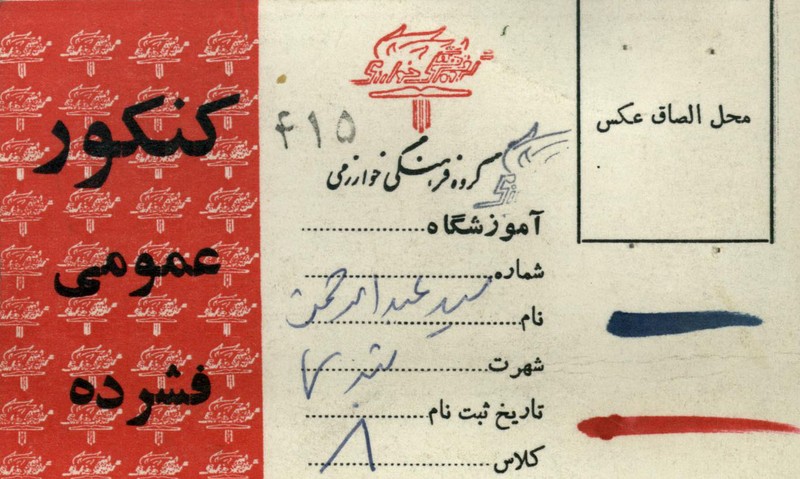 محل الصاق عکس
گروه فرهنگی خوارزمی
۴۱۵
گروه فرهنگی خوارزمی
آموزشگاه
شماره
نام سید عبدالرحمن
شهرت
تاریخ ثبت نام
کلاس ۸
کنکور
عمومی
فشرده